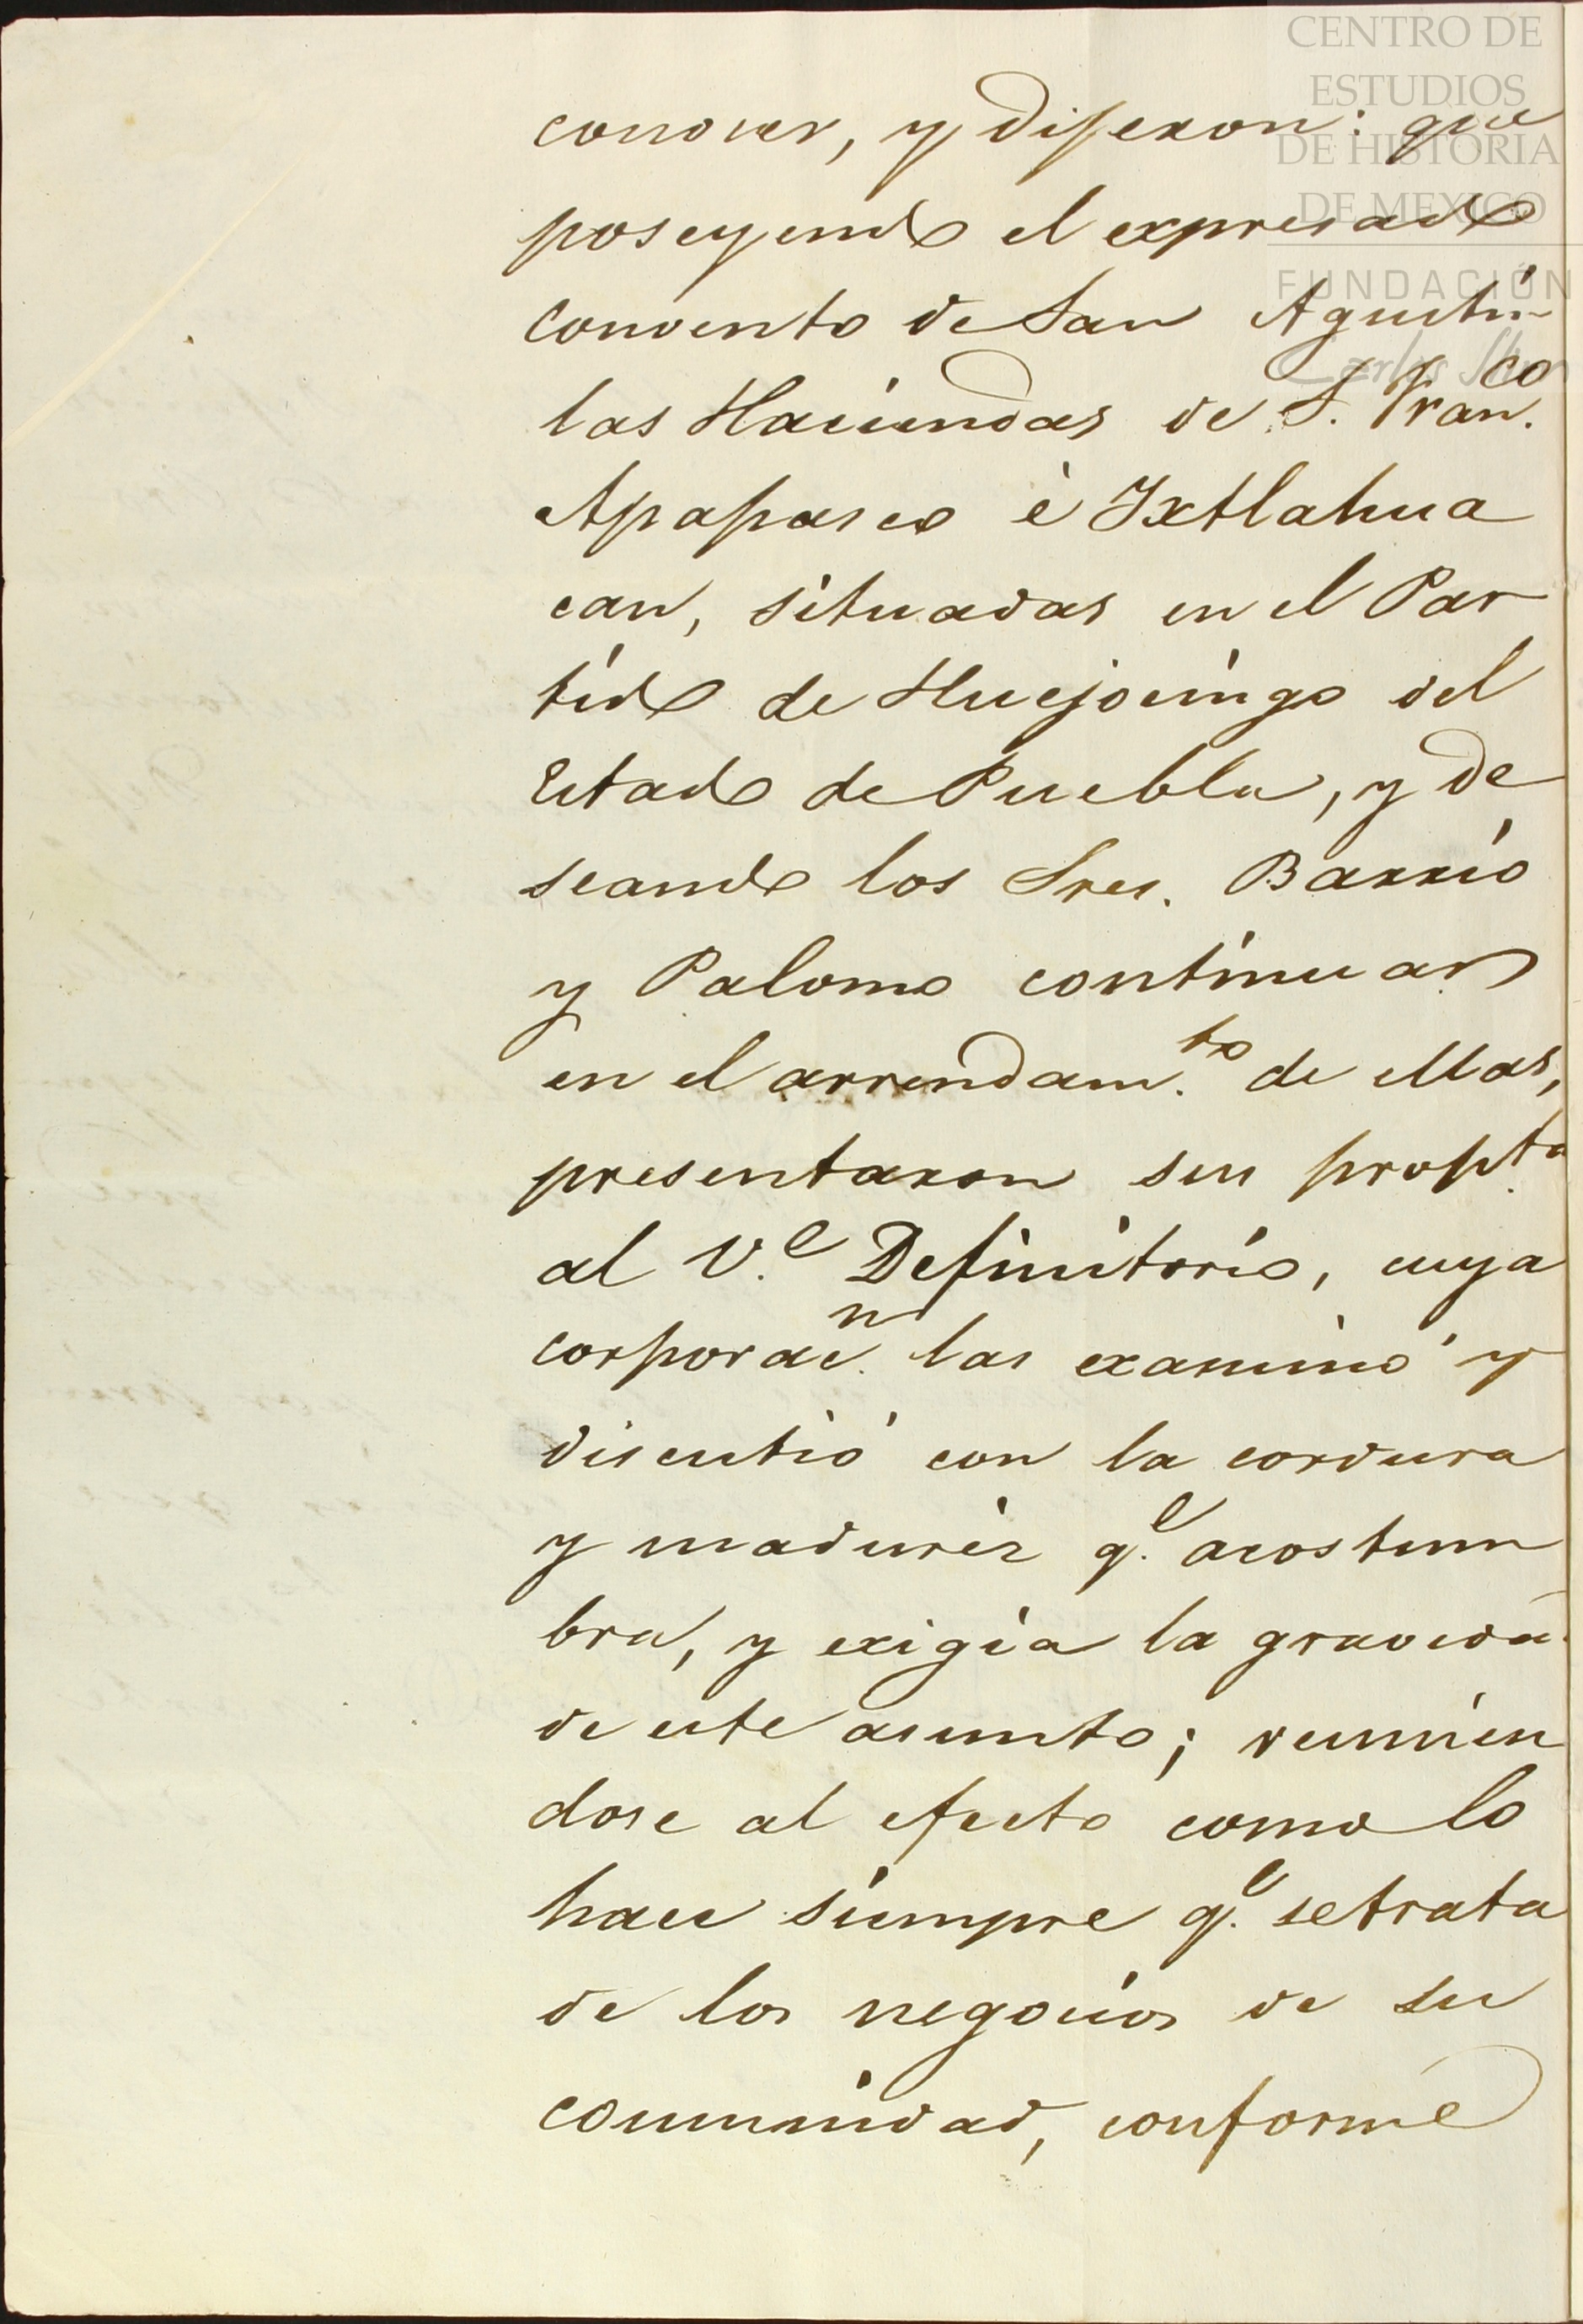 CENTRO DE
ESTUDIOS
DE HISTORIA
DE MEXICO
FUNDACIÓN
Carlos Slim
conocer, y dijeron: que
poseyendo el expresado
Convento de San Agustin
las Haciendas de S. Fran.co
Apapasco è Ixtlahua
can, situadas en el Par
tido de Huejocingo del
Estado de Puebla, y de
seando los Sres. Barrio
y Palomo continuar
en el arrendam.to de ellas,
presentaron sus propt.a
al V.e Definitorio, cuya
corporac.n las examinó y
discutió con la cordura
y madurèz q.e acostum
bra, y exigia la gravedà
de este asunto; reunien
dose al efecto como lo
hace siempre q.e se trata
de los negocios de su
comunidad, conforme